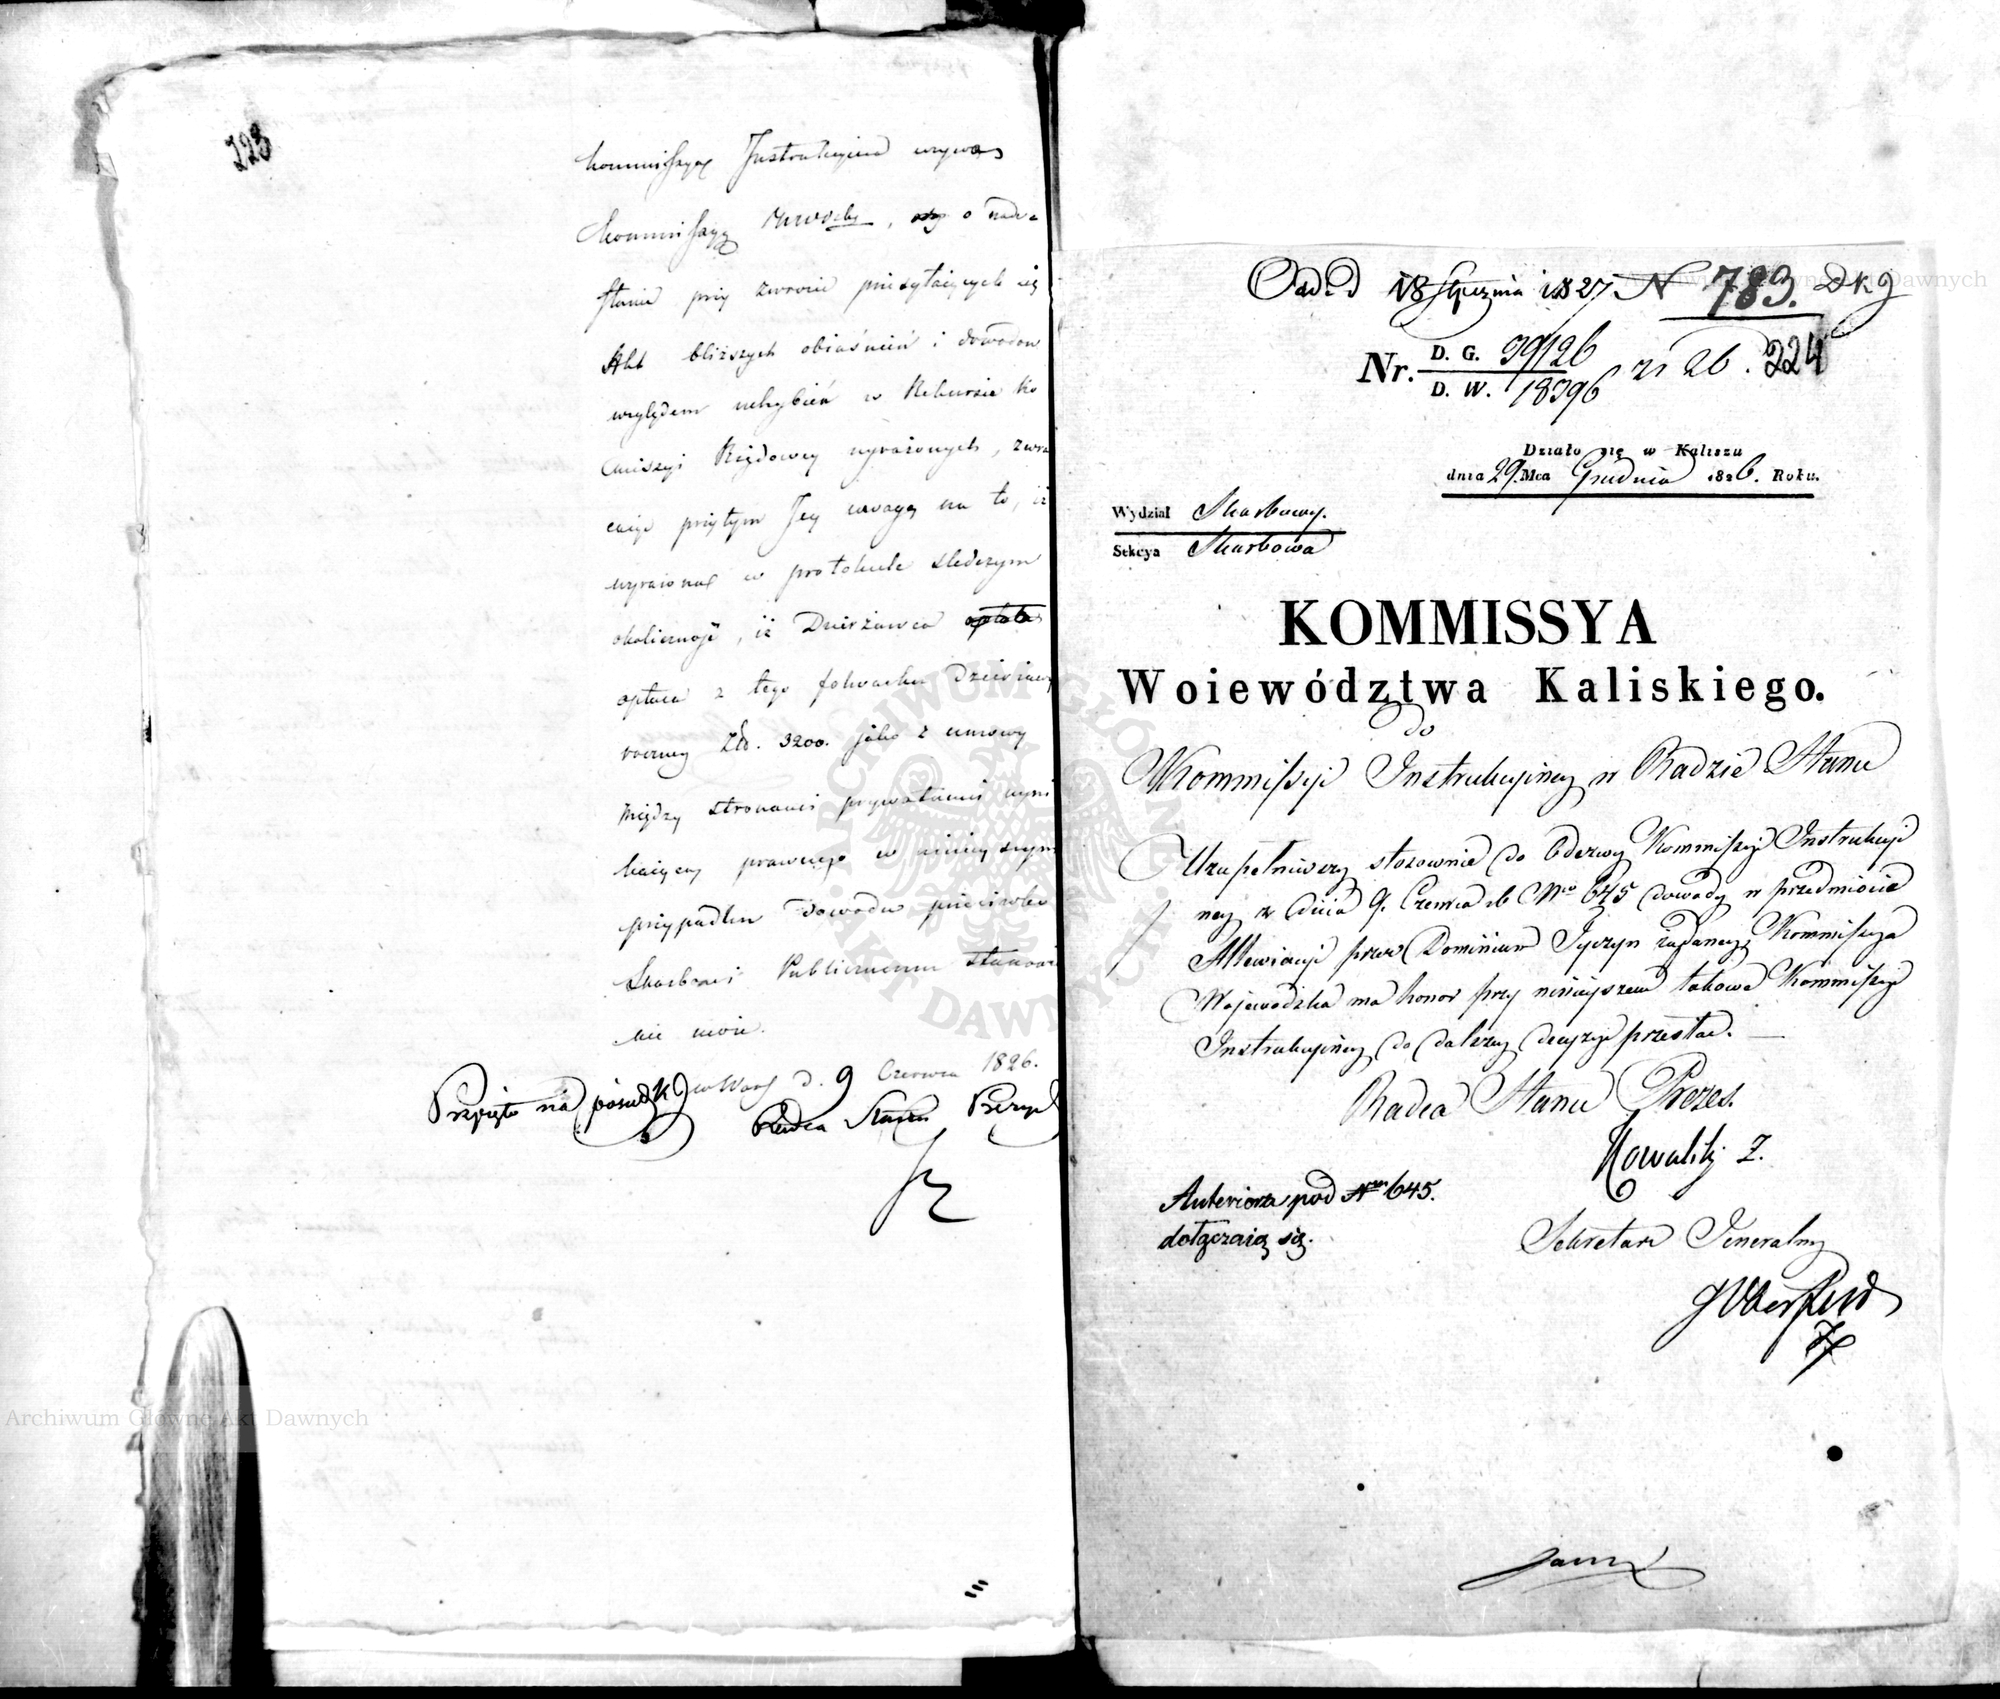 223
Kommissya Instrukcyina wzywa
Kommissyą Wwdzką, o nade
słanie przy zwrocie przesyłaiących się
Akt bliższych obiaśnień i dowodow
względem uchybień w Rekursie Ko
missyi Rządowey wyrażonych, zwra
caiąc przytym Jey uwagę na to, iż
wyrażona w protokule śledczym
okoliczność, iż Dzierżawca
opłaca z tego folwarku dzierżawy
roczney Złp. 3200. jako z umowy
między stronami prywatnemi wyni
kaiącey prawnego w ninieyszym
przypadku dowodu przeciwko
Skarbowi Publicznemu stanowić
nie może.
w Warsz d. 9 Czerwca 1826.
Przyięto na posiedz KJ
Radca Stanu Prezyd
Odd. d 18 Stycznia 1827 N 783. DKJ
Nr. D. G. 39126 z 1826. 224
D. W. 18396
Działo się w Kaliszu
dnia 29. Mca Grudnia 1826. Roku.
Wydział Skarbowy.
Sekcya Skarbowa
KOMMISSYA
Woiewództwa Kaliskiego.
do
Kommissyi Instrukcyiney w Radzie Stanu
Uzupełniwszy stosownie do Odezwy Kommissyi Instrukcyi
ney z dnia 9. Czerwca rb Nro 645 dowody w przedmiocie
Allewiacyi przez Dominium żądaney, Kommissya
Wojewódzka ma honor przy nińieyszem takowe Kommissyi
Instrukcyiney do dalszey decyzyi przesłać.
Radca Stanu Prezes.
Kowalski Z.
Anteriora pod Nrem 645.
dołączaią się.
Sekretarz Jeneralny
Archiwum Główne Akt Dawnych
Archiwum Główne Akt Dawnych
ARCHIWUM GŁÓWNE AKT DAWNYCH